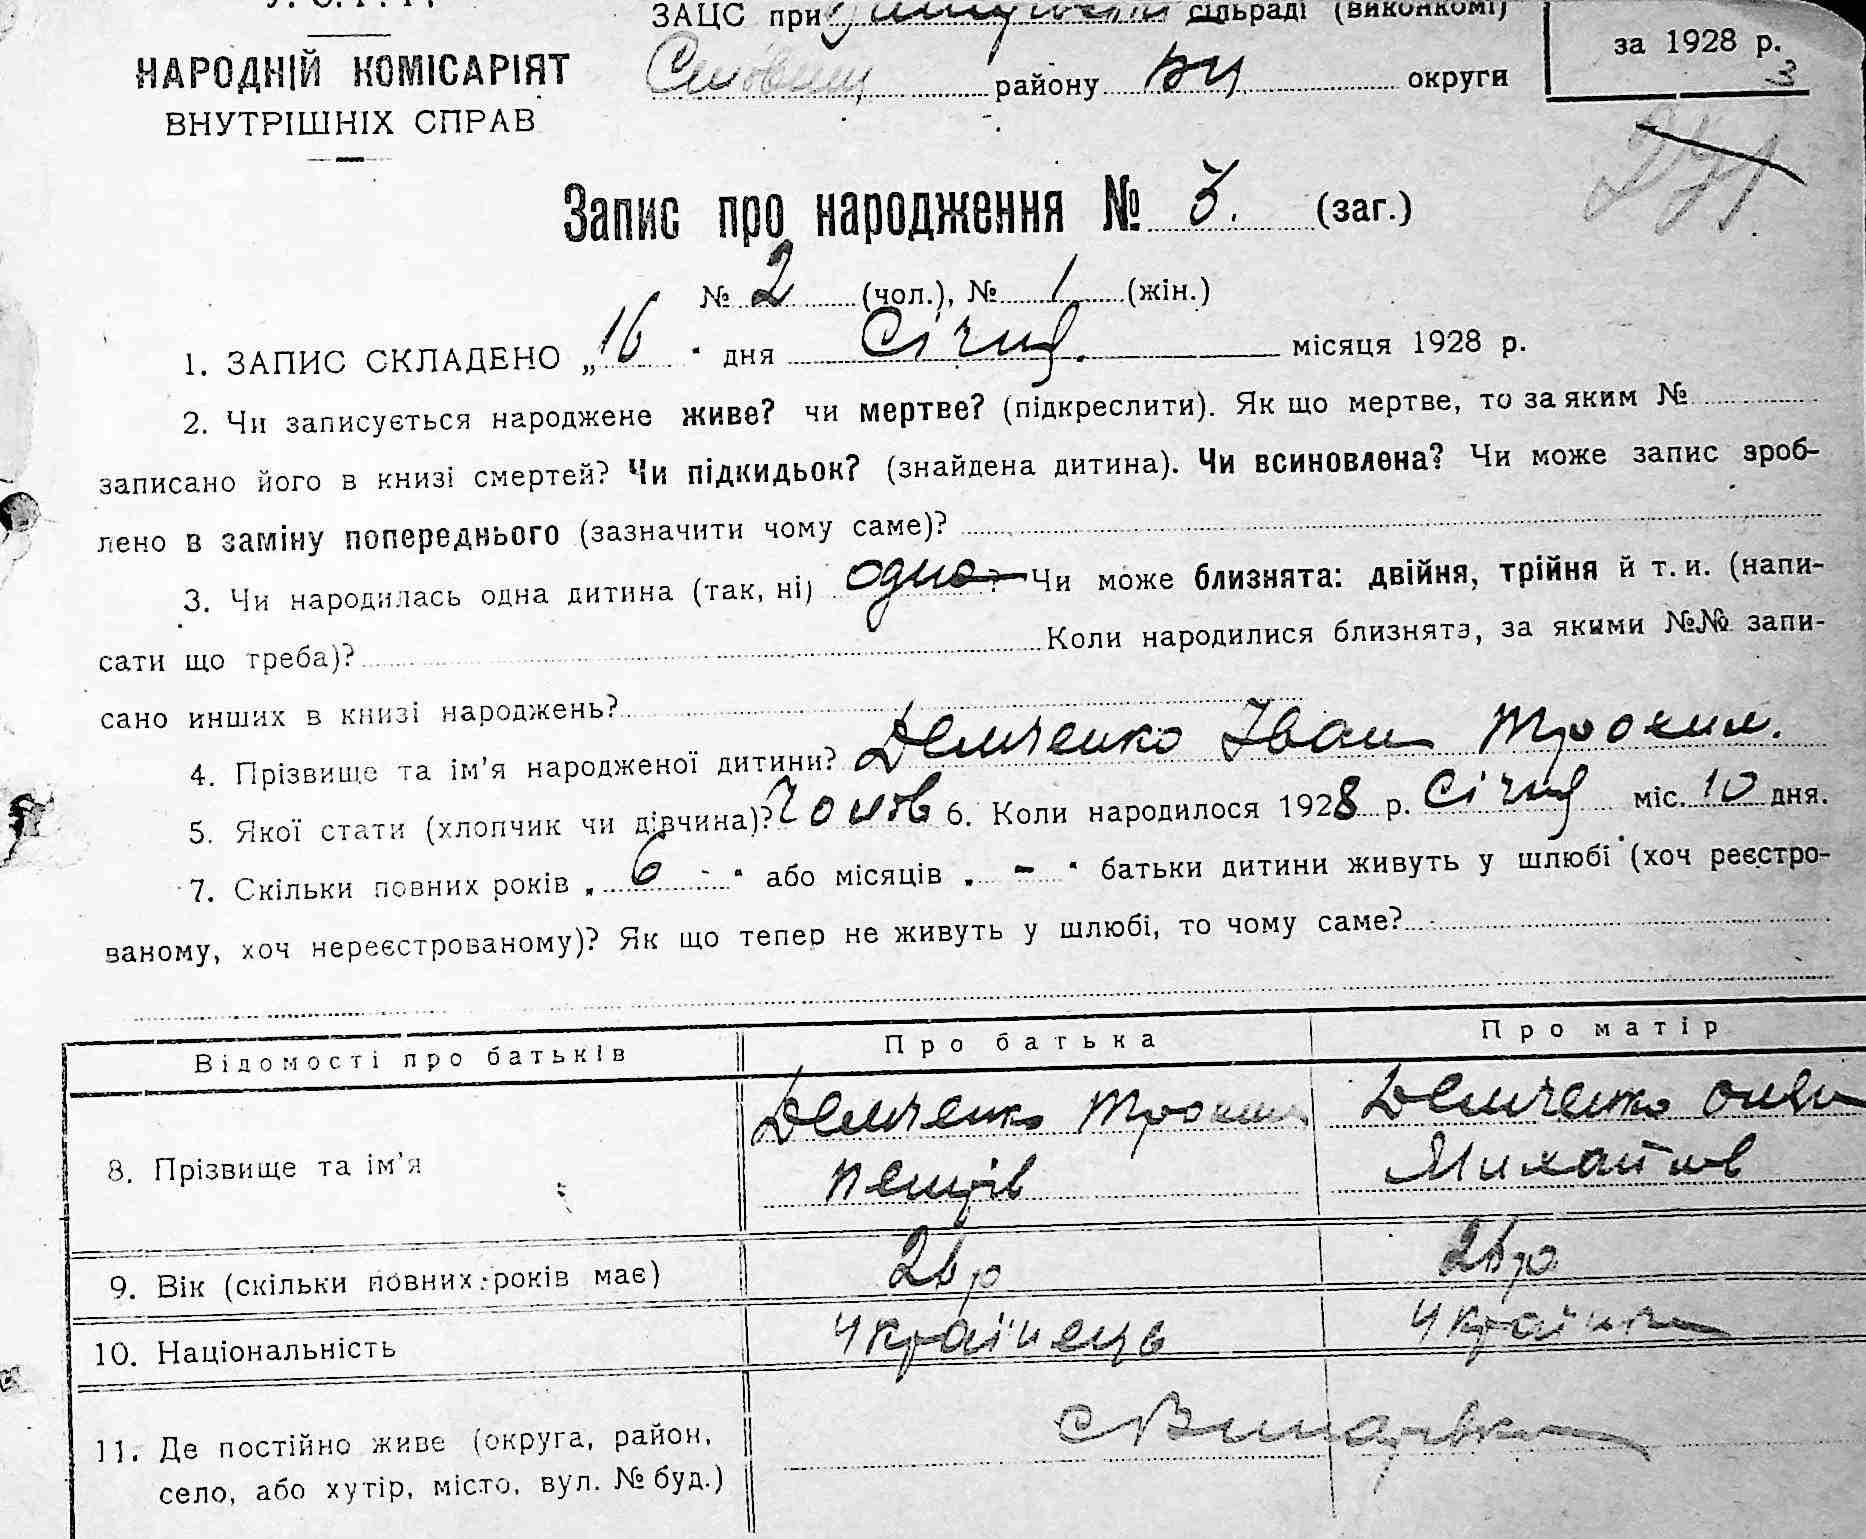 У. С. Р. Р.
ЗАЦС при сільраді (виконкомі)
НАРОДНІЙ КОМІСАРІЯТ
ВНУТРІШНІХ СПРАВ
району БЦ округи
за 1928 р.
3
Запис про народження № 3. (заг.)
№ 2 (чол.), № 1 (жін.)
1. ЗАПИС СКЛАДЕНО „16" дня Січня. місяця 1928 р.
2. Чи записується народжене живе? чи мертве? (підкреслити). Як що мертве, то за яким №
записано його в книзі смертей? Чи підкидьок? (знайдена дитина). Чи всиновлена? Чи може запис зроб-
лено в заміну попереднього (зазначити чому саме)?
3. Чи народилась одна дитина (так, ні) одно? Чи може близнята: двійня, трійня й т. и. (напи-
сати що треба)? Коли народилися близнята, за якими №№ запи-
сано инших в книзі народжень?
4. Прізвище та ім'я народженої дитини? Демченко Іван Трохим.
5. Якої стати (хлопчик чи дівчина)? Чолов 6. Коли народилося 1928 р. Січня міс. 10 дня.
7. Скільки повних років „6" або місяців „-" батьки дитини живуть у шлюбі (хоч реєстро-
ваному, хоч нереєстрованому)? Як що тепер не живуть у шлюбі, то чому саме?
Відомості про батьків Про батька Про матір
8. Прізвище та ім'я Демченко Трохим Демченко
Михайлов
9. Вік (скільки повних років має) 26 р 26 р.
10. Національність Українець Українка
11. Де постійно живе (округа, район,
село, або хутір, місто, вул. № буд.)